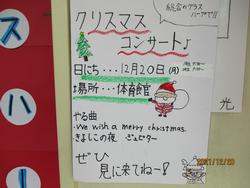 総合のクラス
クリスマス
コンサート♪
日にち・・・12月20日(月)
場所・・・体育館
やる曲
We wish a merry christmas.
きよしこの夜
ぜひ
見に来てねー!!
ス
ハ
光
2021/12/20